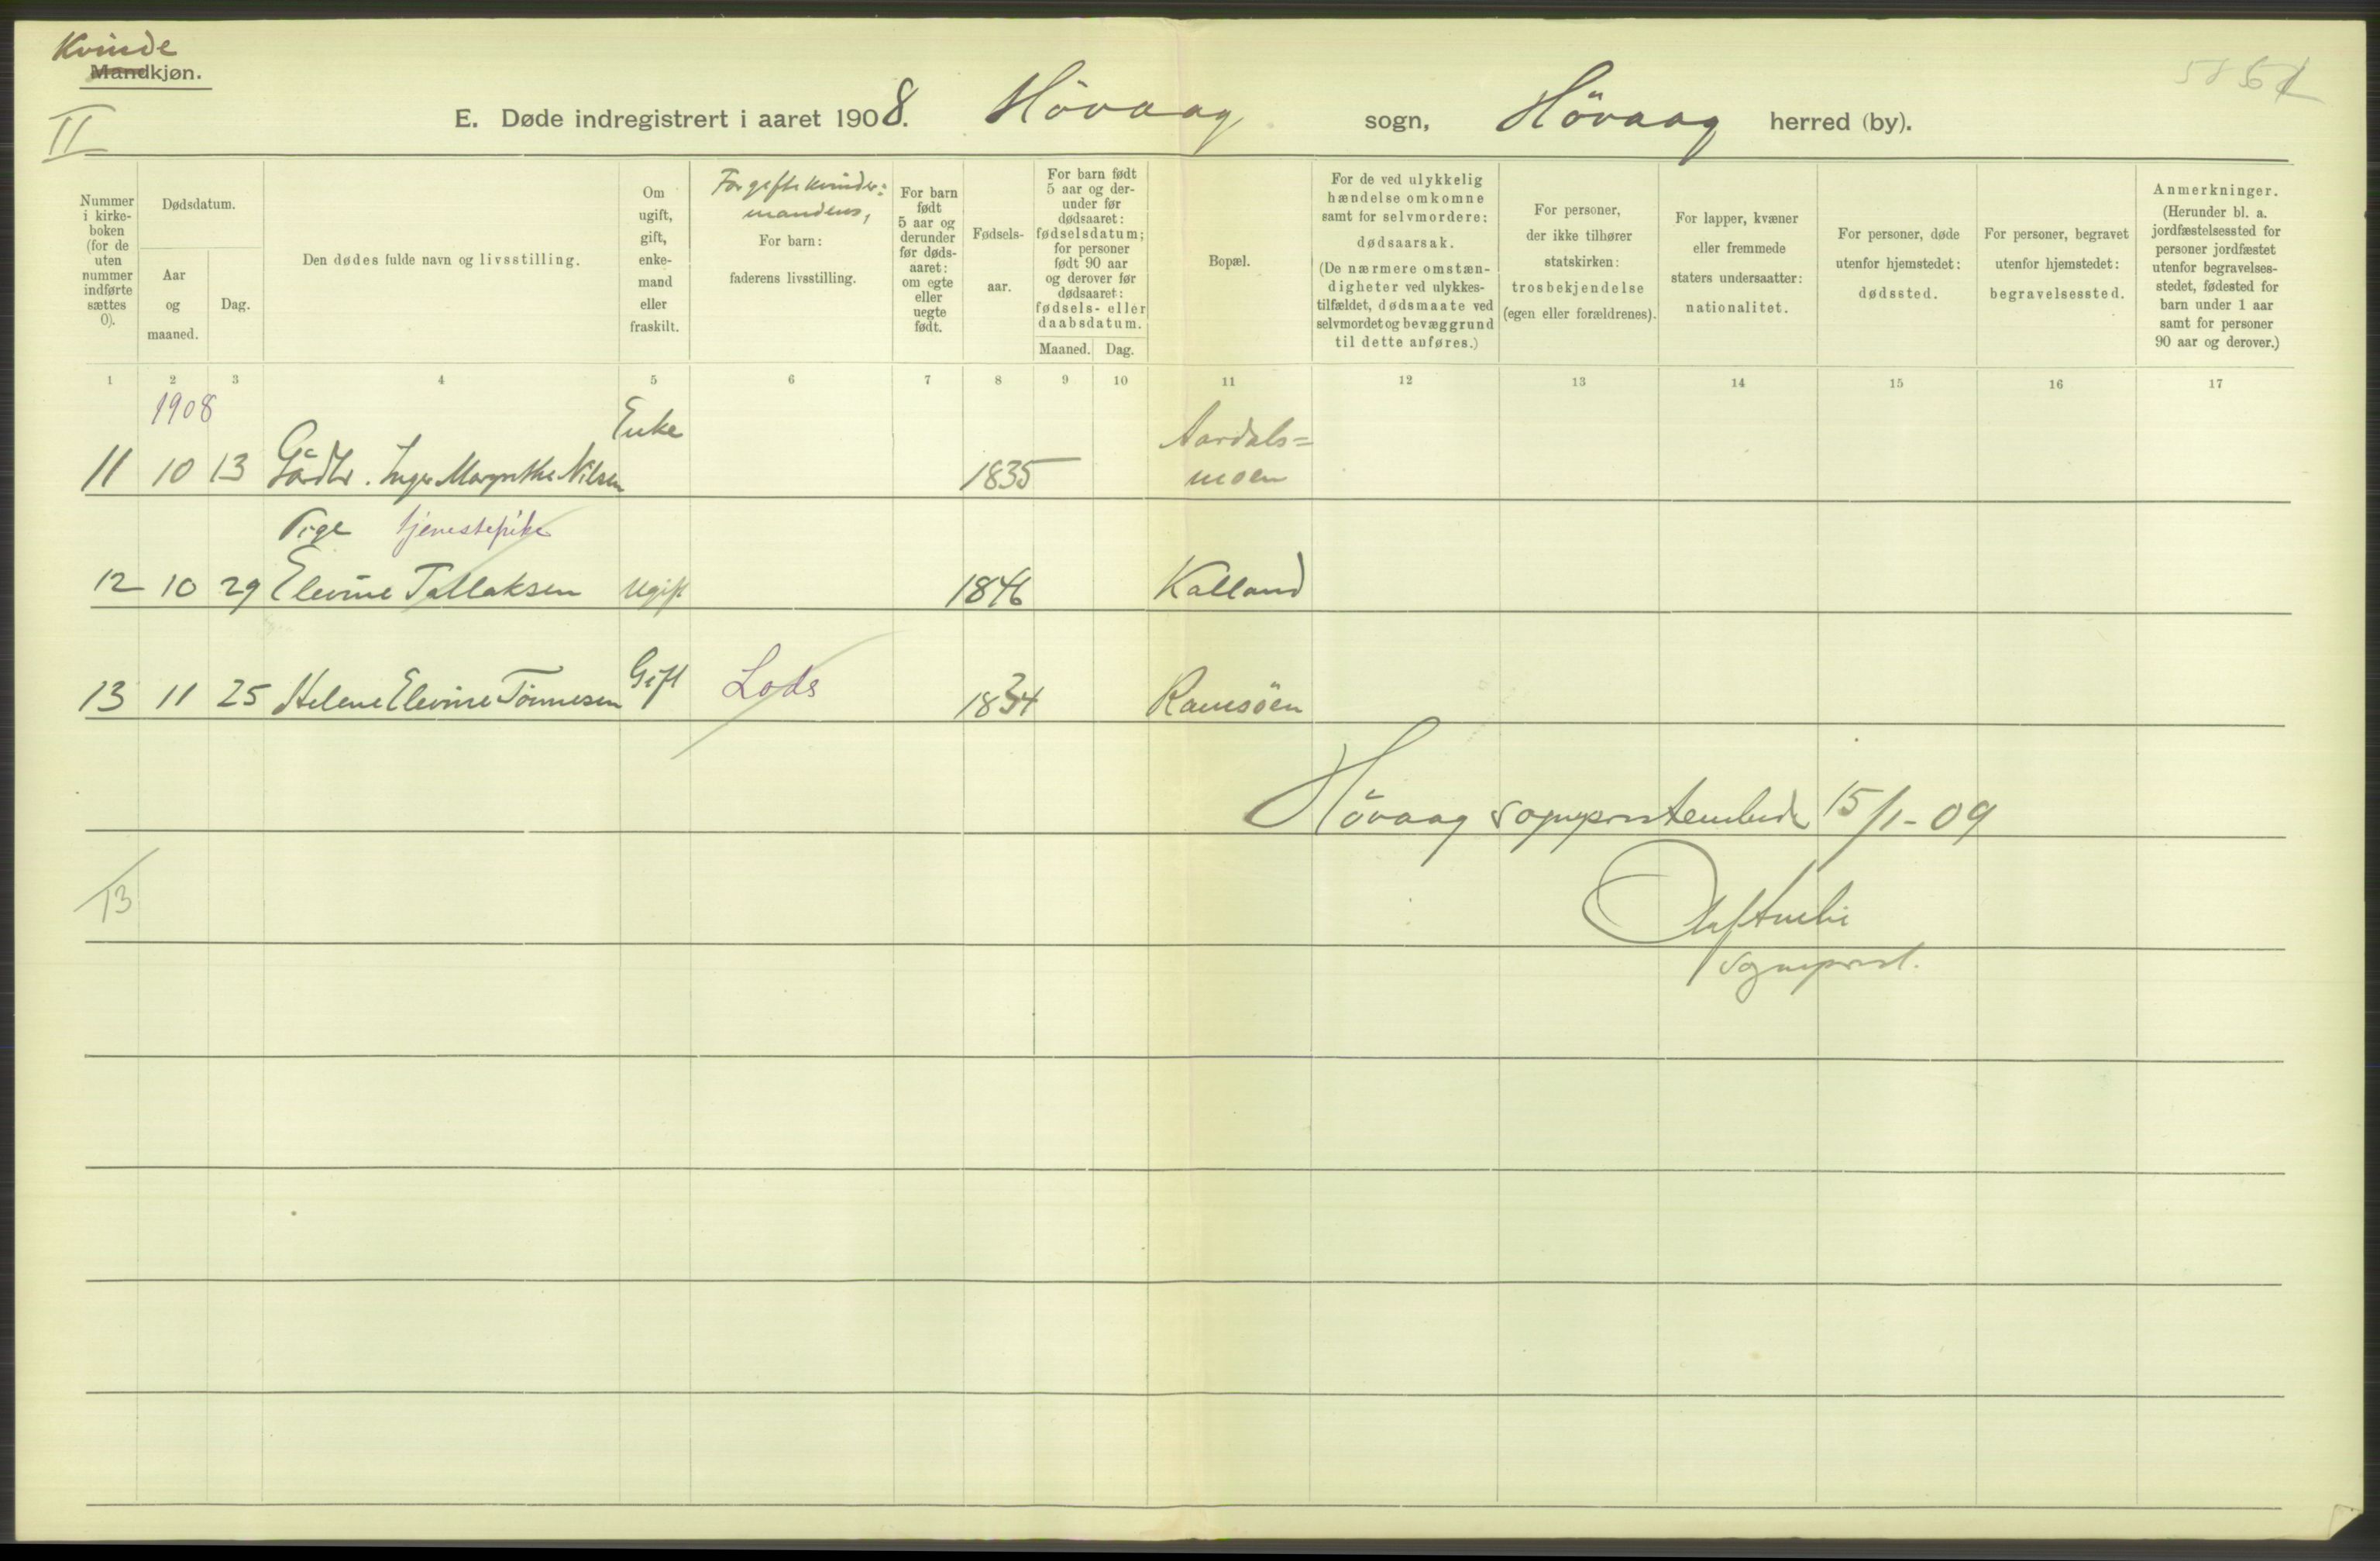 Kvinde
Mandkjøn.
II
E. Døde indregistrert i aaret 1908. Høvaag sogn, Høvaag herred (by).
Nummer i kirke-boken (for de uten nummer indførte sættes 0).
Dødsdatum.
Aar og maaned.
Dag.
Den dødes fulde navn og livsstilling.
Om ugift, gift, enke-mand eller fraskilt.
For gifte kvinder: mandens,
For barn: faderens livsstilling.
For barn født 5 aar og derunder før døds-aaret: om egte eller uegte født.
Fødsels-aar.
For barn født 5 aar og der-under før dødsaaret: fødselsdatum; for personer født 90 aar og derover før dødsaaret: fødsels- eller daabsdatum.
Maaned. Dag.
Bopæl.
For de ved ulykkelig hændelse omkomne samt for selvmordere: dødsaarsak. (De nærmere omstæn-digheter ved ulykkes-tilfældet, dødsmaate ved selvmordet og bevæggrund til dette anføres.)
For personer, der ikke tilhører statskirken: trosbekjendelse (egen eller forældrenes).
For lapper, kvæner eller fremmede staters undersaatter: nationalitet.
For personer, døde utenfor hjemstedet: dødssted.
For personer, begravet utenfor hjemstedet: begravelsessted.
Anmerkninger. (Herunder bl. a. jordfæstelsessted for personer jordfæstet utenfor begravelses-stedet, fødested for barn under 1 aar samt for personer 90 aar og derover.)
1 2 3 4 5 6 7 8 9 10 11 12 13 14 15 16 17
1908
11 10 13 Inger Margrethe Nilsen Enke 1835 Aardals=
moen
Pige tjenestepike
12 10 29 Elevine Tallaksen Ugift 1846 Kalland
13 11 25 Helene Elevine Tönnesen Gift Lods 1834 Ramsöen
Høvaag sogneprestembede 15/1-09
13
Olaf
sogneprest.